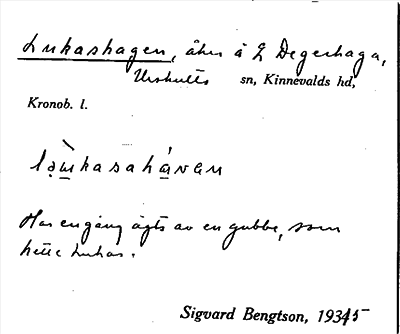 Lukashagen, åker å L Degerhaga,
Urshults sn, Kinnevalds hd,
Kronob. l.
Har en gång ägts av en gubbe, som
hette Lukas.
Sigvard Bengtson, 19345